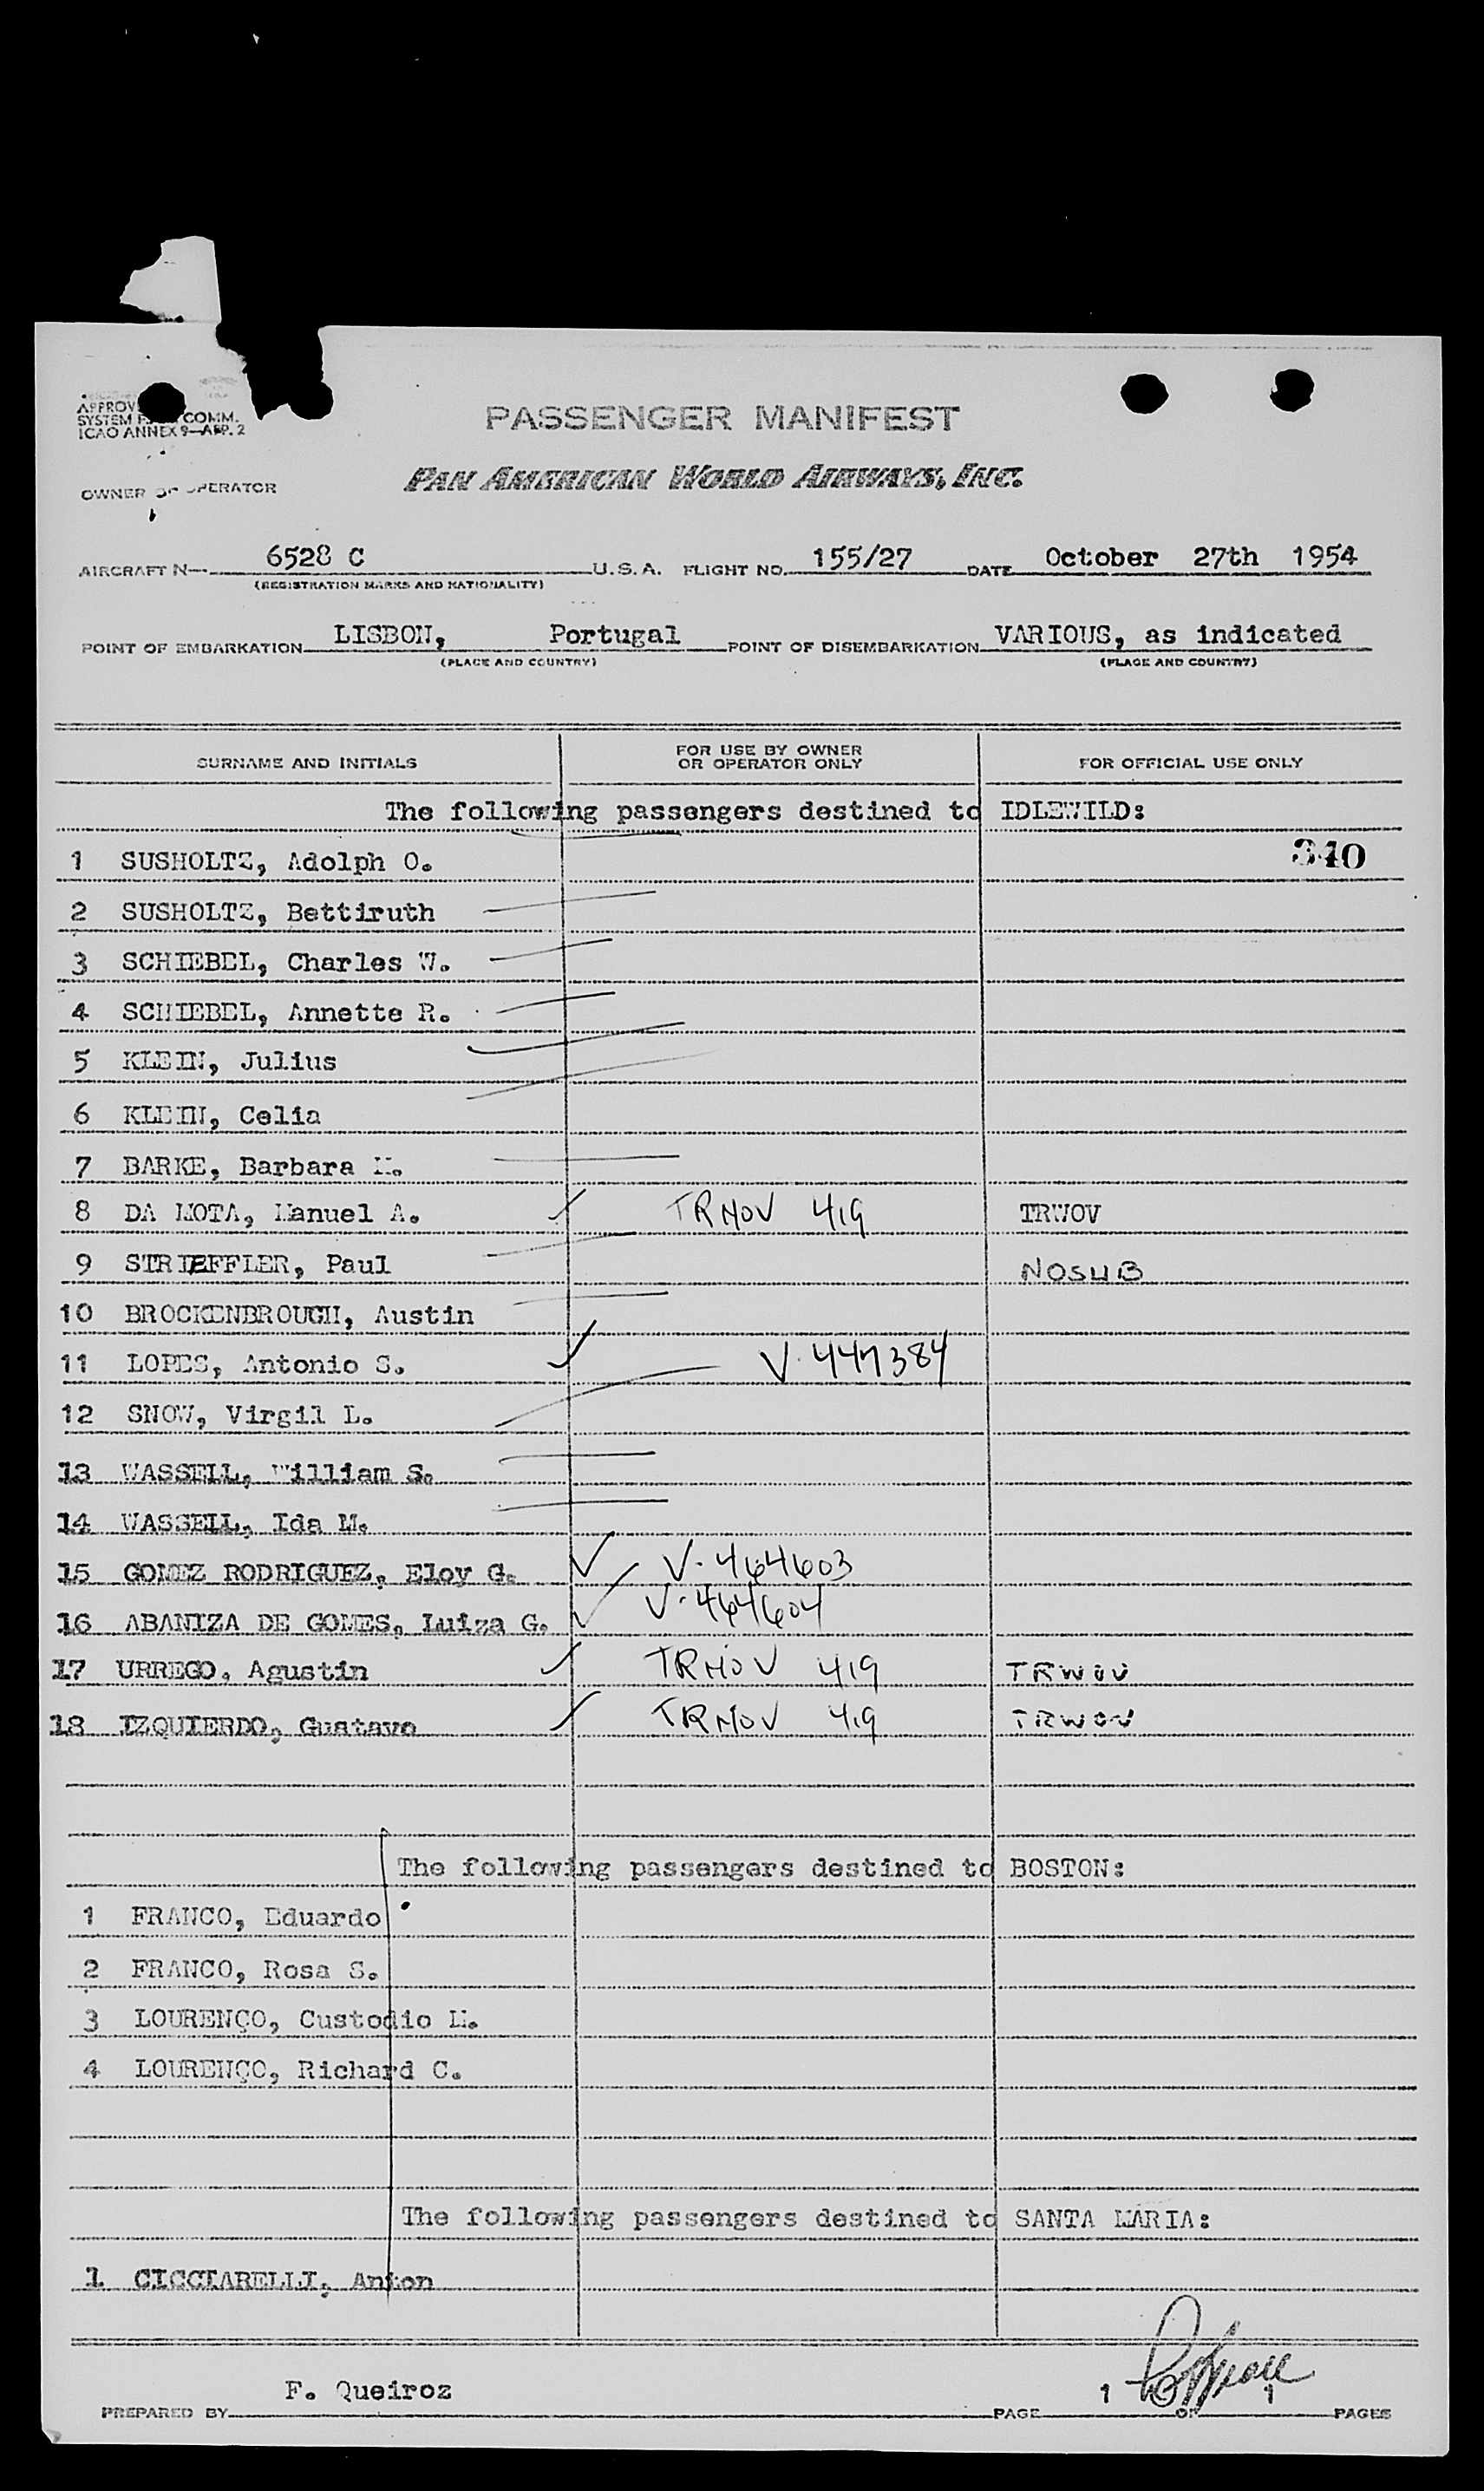 APPROV
SYSTEM COMM.
ICAO ANNEX 9—APP. 2
PASSENGER MANIFEST
OWNER OR OPERATOR PAN AMERICAN WORLD AIRWAYS, INC.
AIRCRAFT N— 6528 C U.S.A. FLIGHT NO. 155/27 DATE October 27th 1954
(REGISTRATION MARKS AND NATIONALITY)
POINT OF EMBARKATION LISBON, Portugal POINT OF DISEMBARKATION VARIOUS, as indicated
(PLACE AND COUNTRY) (PLACE AND COUNTRY)
SURNAME AND INITIALS FOR USE BY OWNER OR OPERATOR ONLY FOR OFFICIAL USE ONLY
The following passengers destined to IDLEWILD:
1 SUSHOLTZ, Adolph O. 340
2 SUSHOLTZ, Bettiruth
3 SCHIEBEL, Charles W.
4 SCHIEBEL, Annette R.
5 KLEIN, Julius
6 KLEIN, Celia
7 BARKE, Barbara M.
8 DA MOTA, Manuel A. TRWOV 419 TRWOV
9 STRIEFFLER, Paul NOSUB
10 BROCKENBROUGH, Austin
11 LOPES, Antonio S. V. 447384
12 SNOW, Virgil L.
13 WASSELL, William S.
14 WASSELL, Ida M.
15 GOMEZ RODRIGUEZ, Eloy G. V. 464603
16 ABANIZA DE GOMES, Luiza G. V. 464604
17 URREGO, Agustin TRWOV 419 TRWOV
18 IZQUIERDO, Gustavo TRWOV 419 TRWOV
The following passengers destined to BOSTON:
1 FRANCO, Eduardo
2 FRANCO, Rosa S.
3 LOURENÇO, Custodio M.
4 LOURENÇO, Richard C.
The following passengers destined to SANTA MARIA:
1 CICCIARELLI, Anton
PREPARED BY F. Queiroz PAGE 1 OF 1 PAGES